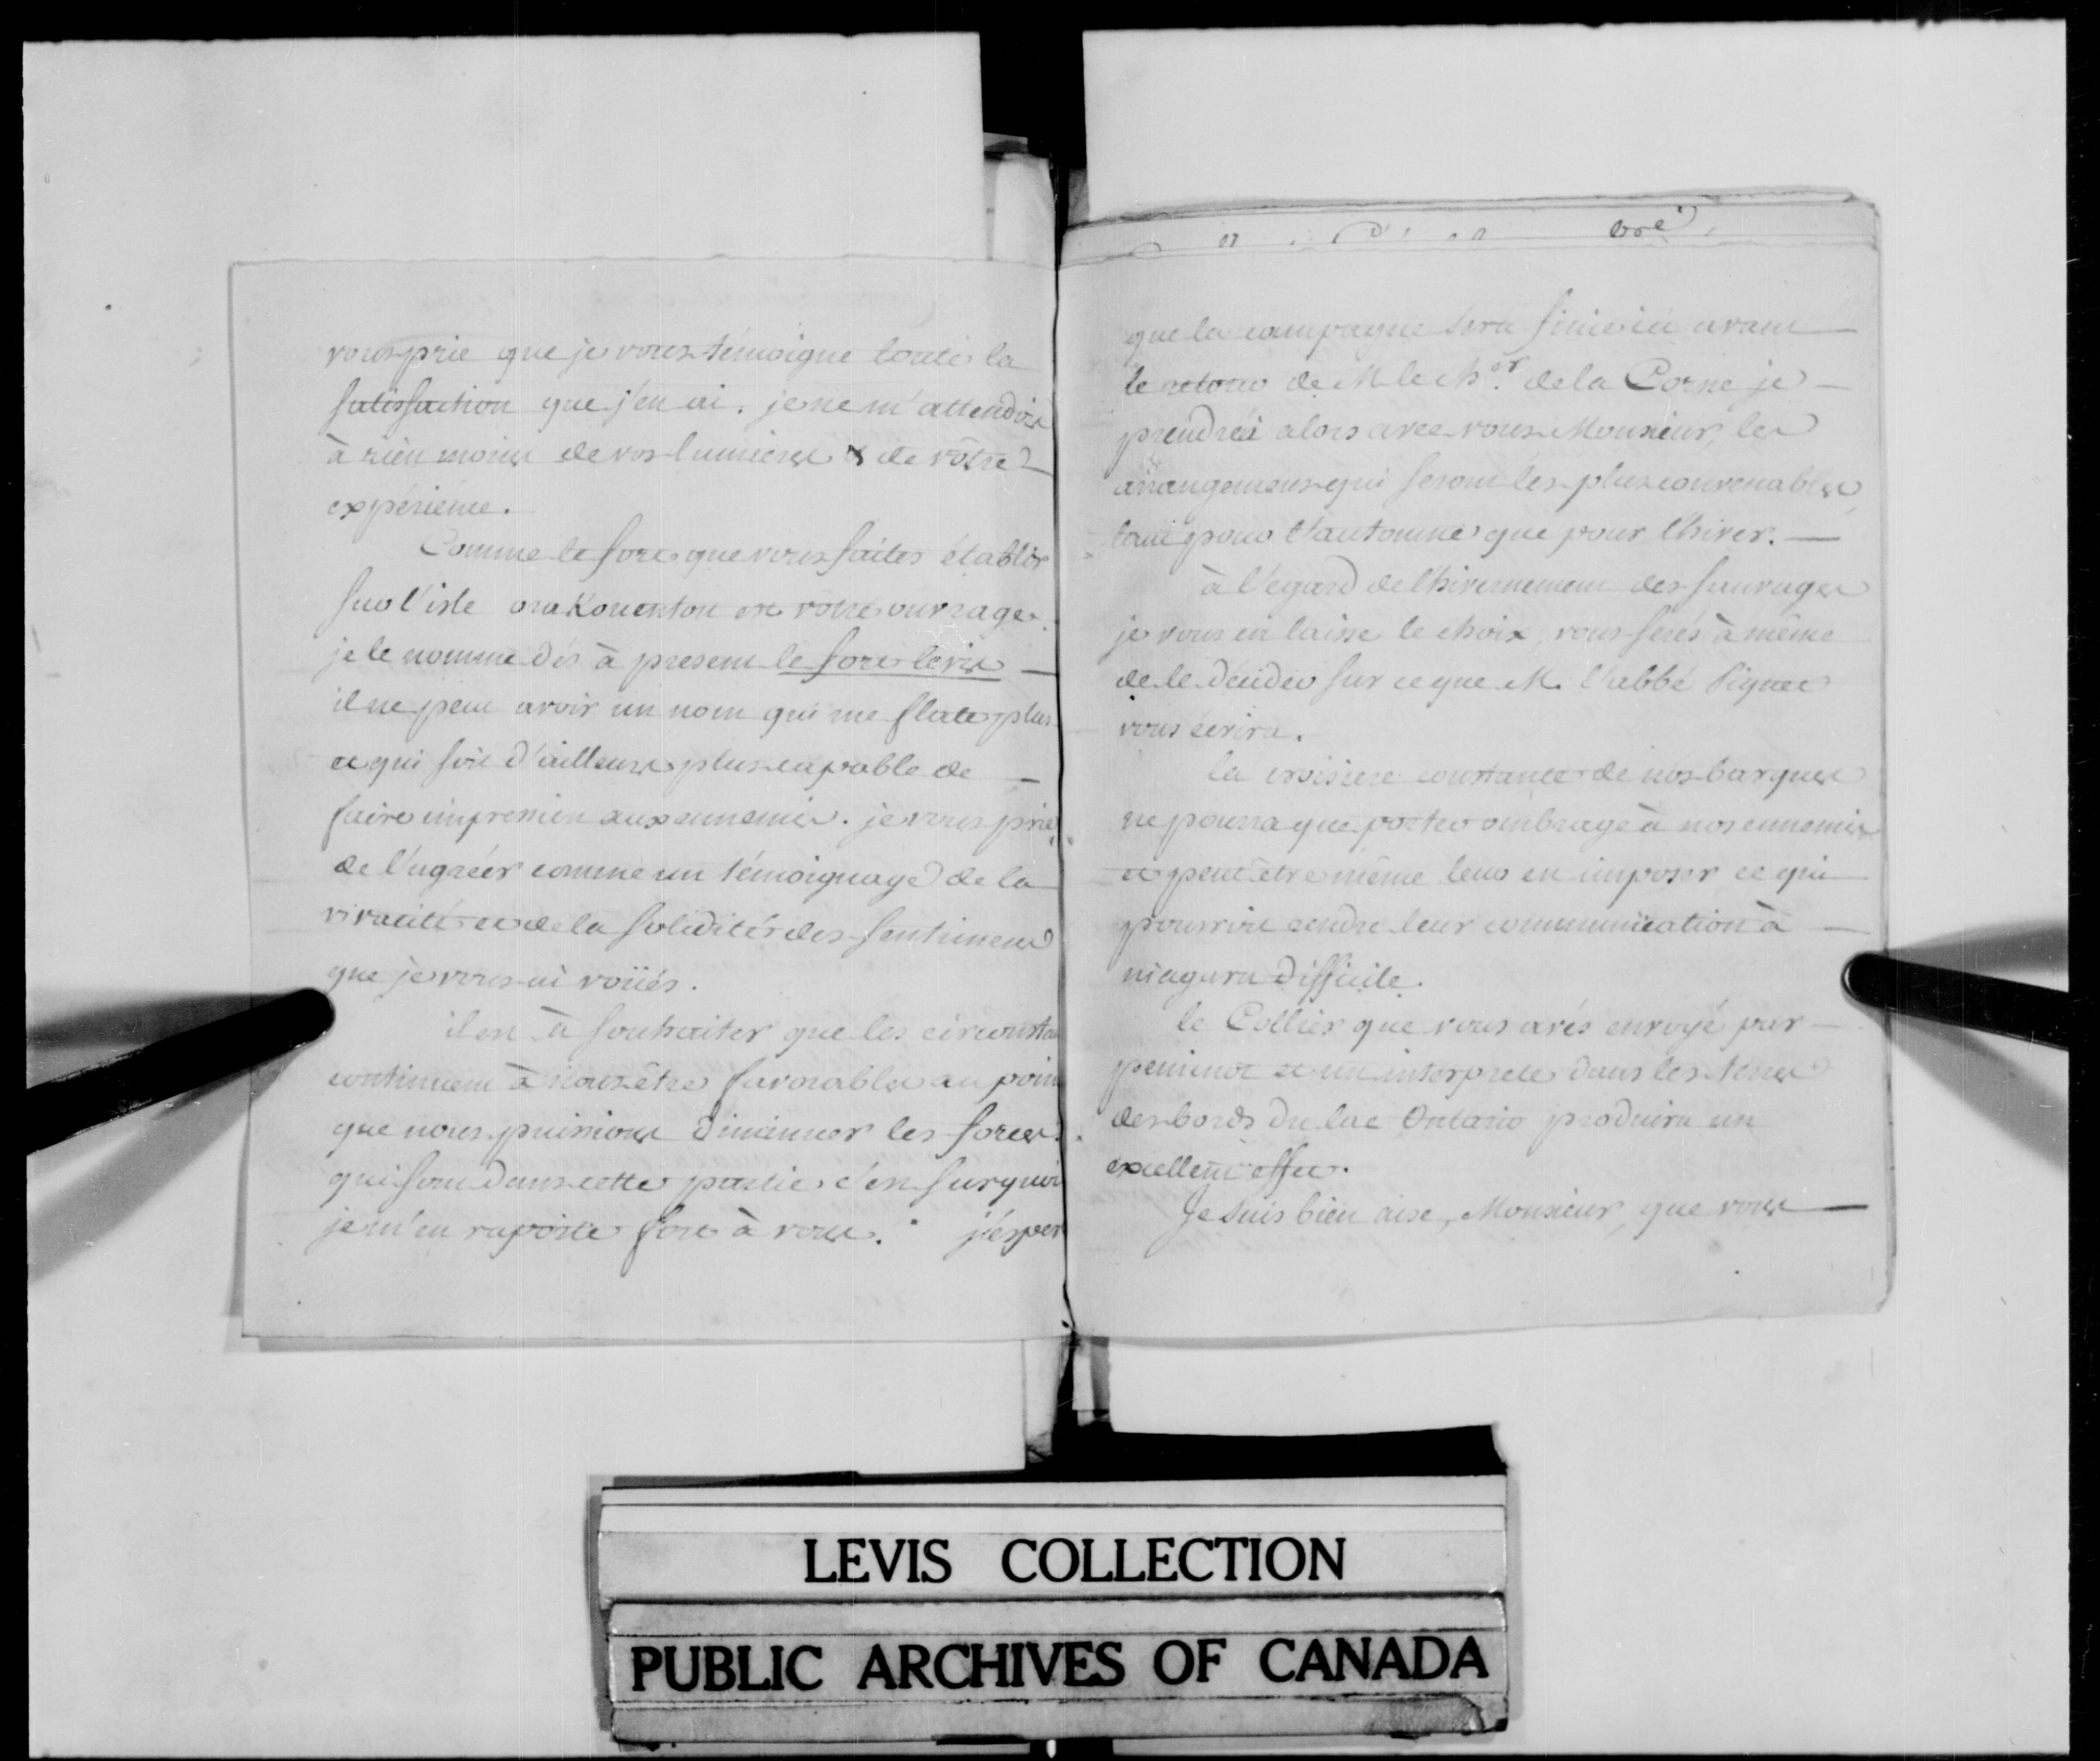 vous prie que je vous témoigne toute la
satisfaction que j'en ai. je ne m'attendois
à rien moins de vos lumieres & de vôtre
expérience.
Comme le fort que vous faites établir
sur l'isle orakouenton est vôtre ouvrage.
je le nomme dés à present le fort levis
il ne peut avoir un nom qui me flate plus
et qui soit d'ailleurs plus capable de
faire impression aux ennemis. je vous prie
de l'agréer comme un témoignage de la
vivacité et de la solidité des sentiment
que je vous ai voüés.
il est à souhaiter que les circonstan
continuent à nous être favorables au poin
que nous puissions diminuer les forces
qui sont dans cette partie c'est sur quoi
je m'en raporte fort à vous. j'esper
bre
que la campagne sera finie ici avant
le retour de M. le Ch.er de la Corne je
prendréi alors avec vous Monsieur, les
arrangemens qui seront les plus convenables
tant pour l'automne que pour l'hiver.
à l'egard de l'hivernement des sauvages
je vous en laisse le choix, vous serés à même
de le décider sur ce que M. l'abbé Piquet
vous écrira.
la croisiere constante de nos barques
ne pourra que porter ombrage à nos ennemis
et peut être même leur en imposer ce qui
pourroit rendre leur communication à
niagara difficile.
le Collier que vous avés envoyé par
peminot et un interprete dans les terres
des bords du lac Ontario produira un
excellent effet.
Je suis bien aise, Monsieur, que vous
LEVIS COLLECTION
PUBLIC ARCHIVES OF CANADA